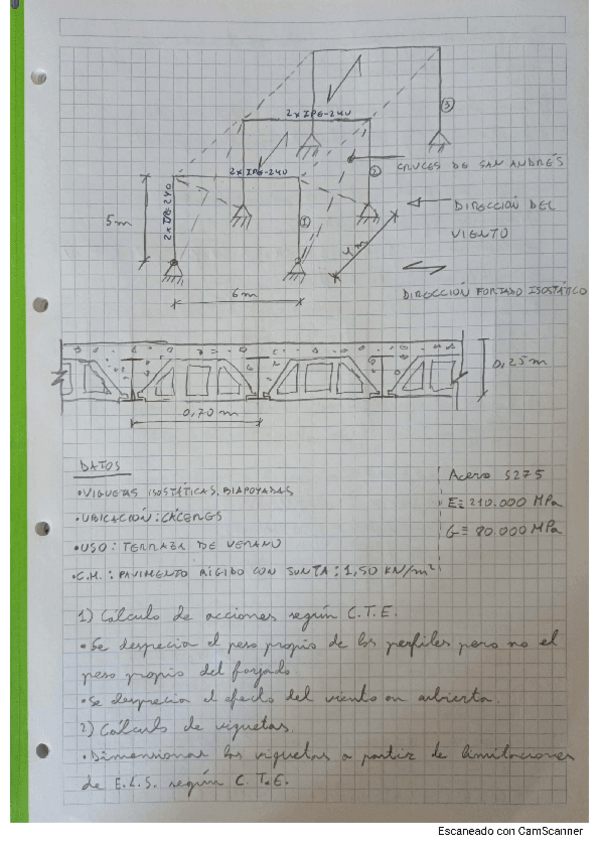 ③
2 x IPE-240
②
CRUCES DE SAN ANDRÉS
2 x IPE-240
2 x IPE-240
5 m
①
DIRECCIÓN DEL
VIENTO
4 m
DIRECCIÓN FORJADO ISOSTÁTICO
6 m
0,25 m
0,70 m
DATOS
• VIGUETAS ISOSTÁTICAS. BIAPOYADAS
• UBICACIÓN: CÁCERES
• USO: TERRAZA DE VERANO
• C.M.: PAVIMENTO RÍGIDO CON JUNTA: 1,50 KN/m²
Acero S275
E = 210.000 MPa
G = 80.000 MPa
1) Cálculo de acciones según C.T.E.
• Se desprecia el peso propio de los perfiles pero no el
peso propio del forjado.
• Se desprecia el efecto del viento en cubierta.
2) Cálculo de viguetas.
• Dimensionar las viguetas a partir de limitaciones
de E.L.S. según C.T.E.
Escaneado con CamScanner